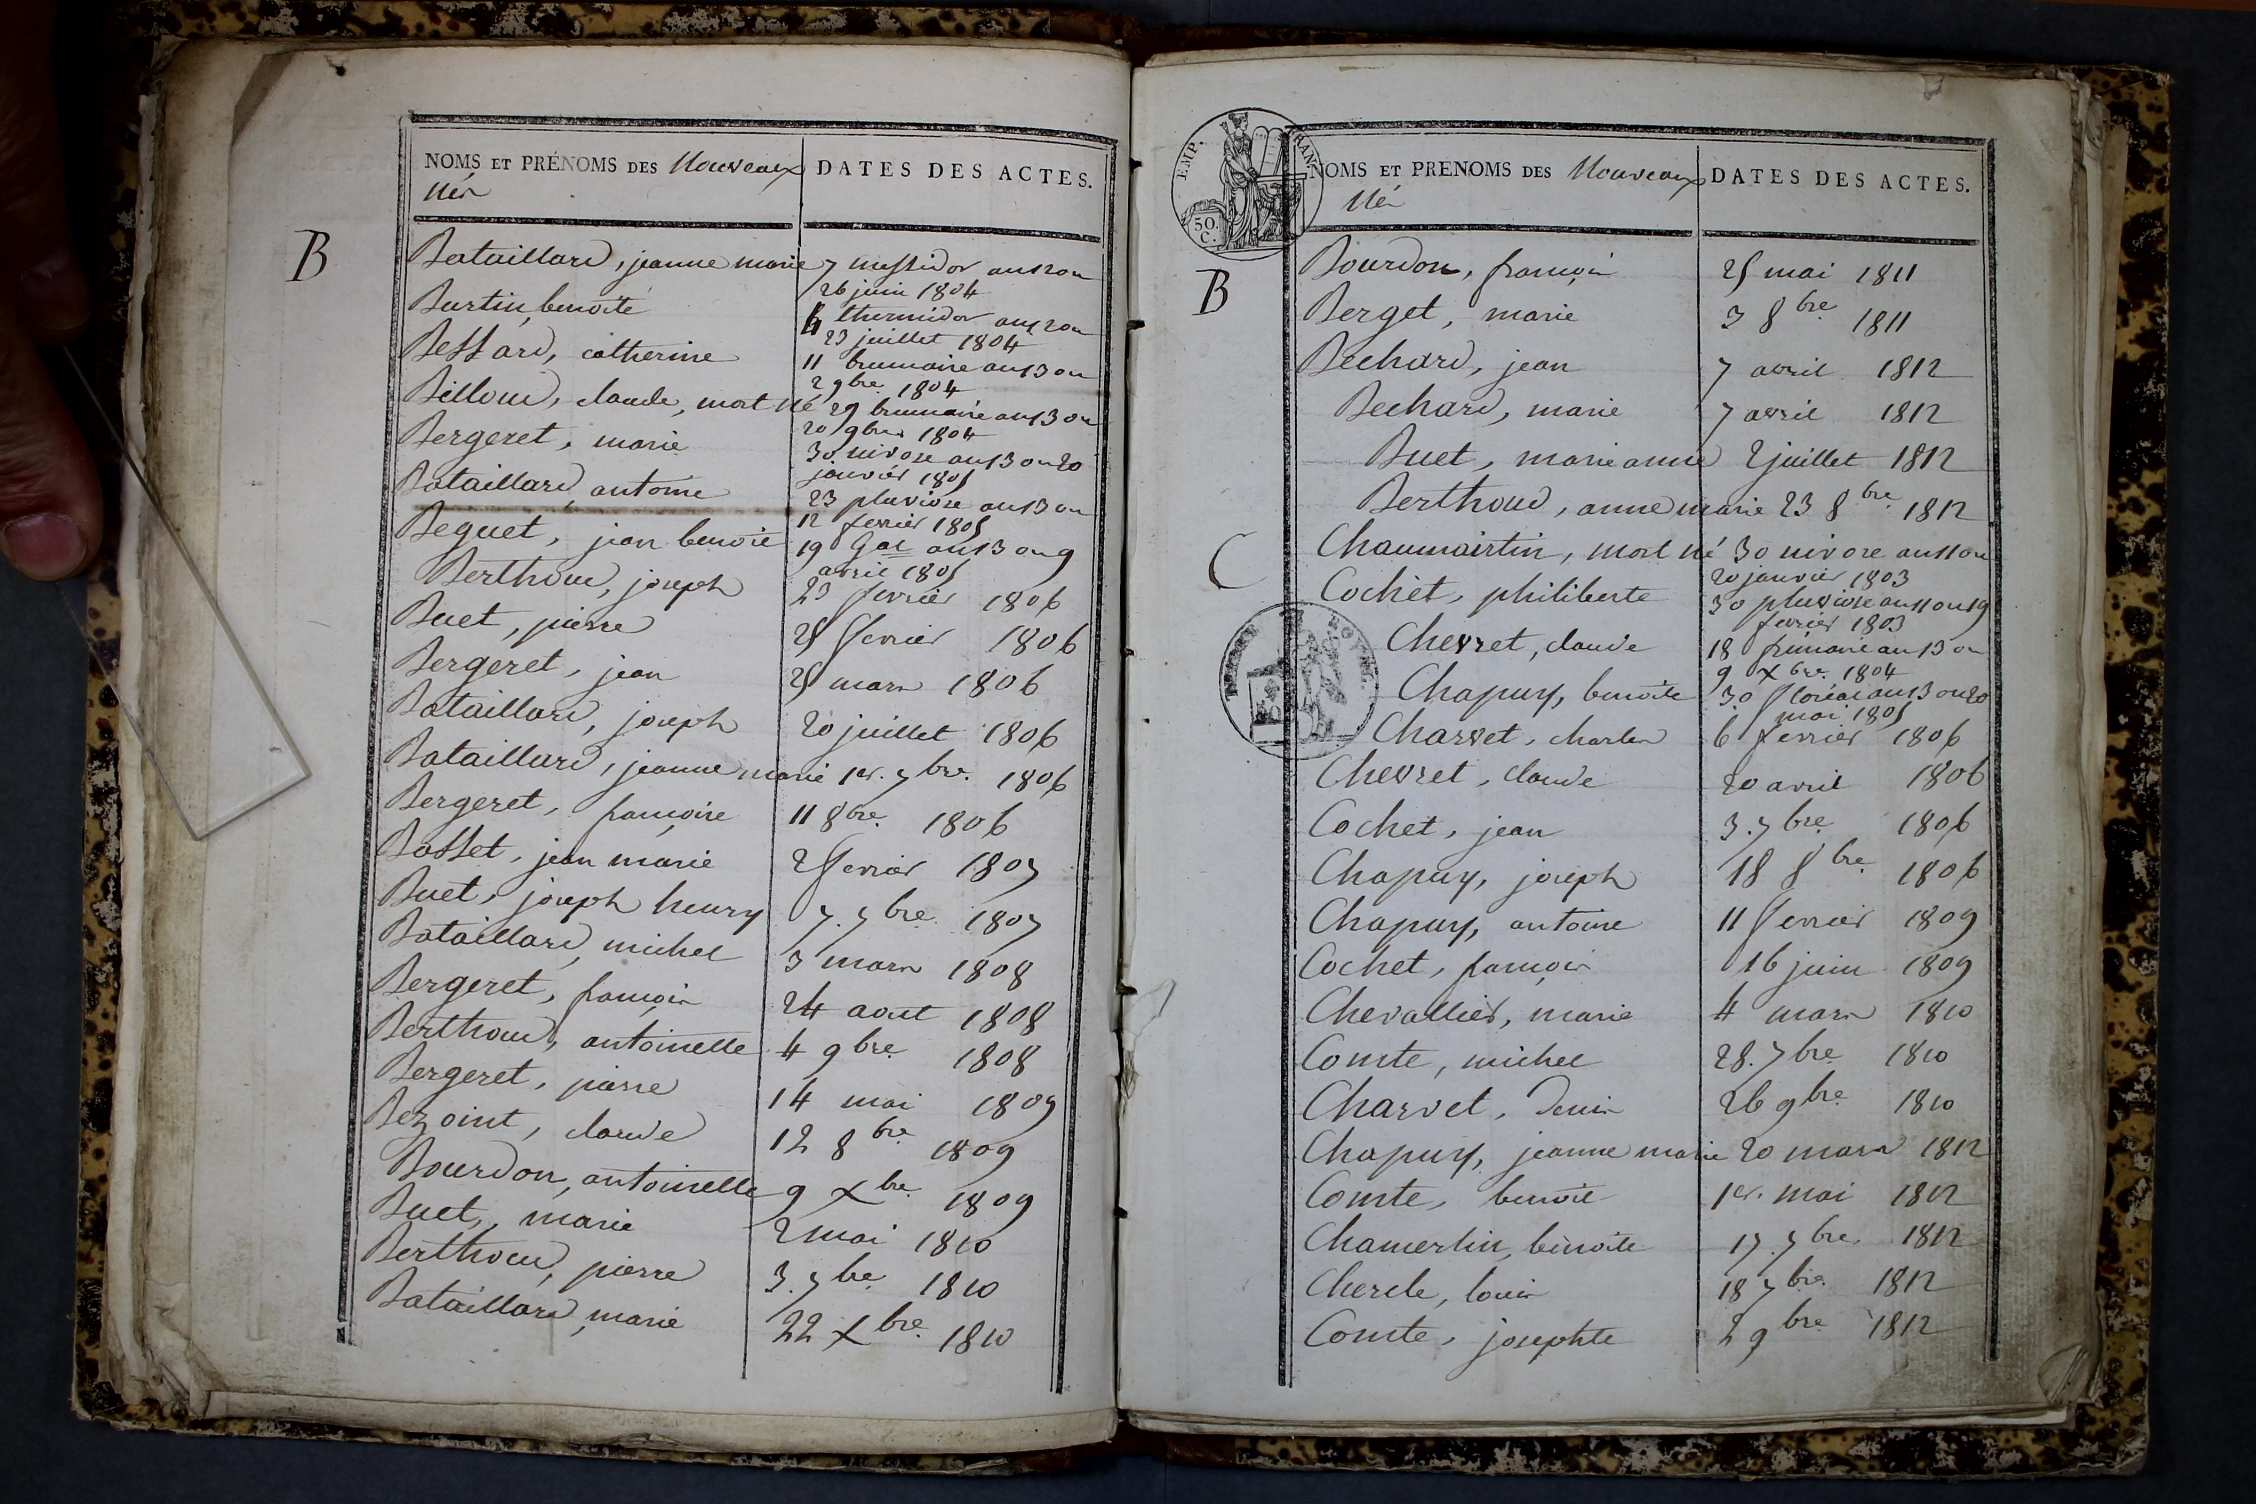 NOMS ET PRÉNOMS DES Nouveaux
Nés
DATES DES ACTES.
B
Bataillard, jeanne marie 7 messidor an 12 ou
26 juin 1804
Burtin, benoite 4 thermidor an 12 ou
23 juillet 1804
Bessard, catherine 11 brumaire an 13 ou
2 9bre 1804
Billoud, claude, mort né 29 brumaire an 13 ou
20 9bre 1804
Bergeret, marie 30 nivose an 13 ou 20
janvier 1805
Bataillard, antoine 23 pluviose an 13 ou
12 fevrier 1805
Beguet, jean benoit 19 Gal an 13 ou 9
avril 1805
Berthoud, joseph 23 fevrier 1806
Buet, pierre 25 fevrier 1806
Bergeret, jean 25 mars 1806
Bataillard, joseph 20 juillet 1806
Bataillard, jeanne marie 1er. 7bre. 1806
Bergeret, françoise 11 8bre. 1806
Basset, jean marie 2 fevrier 1807
Buet, joseph henry 7. 7bre. 1807
Bataillard, michel 3 mars 1808
Bergeret, françois 24 aout 1808
Berthoud, antoinette 4 9bre. 1808
Bergeret, pierre 14 mai 1809
Bezoint, claude 12 8bre. 1809
Bourdon, antoinette 9 Xbre. 1809
Buet, marie 2 mai 1810
Berthoud, pierre 3. 7bre. 1810
Bataillard, marie 22 Xbre. 1810
EMP. FRAN.
50.
C.
NOMS ET PRENOMS DES Nouveaux
Nés
DATES DES ACTES.
B
Bourdon, françois 25 mai 1811
Berget, marie 3 8bre. 1811
Bechard, jean 7 avril 1812
Bechard, marie 7 avril 1812
Buet, marie anne 2 juillet 1812
Berthoud, anne marie 23 8bre. 1812
C
Chaumairtin, mort né 30 nivose an 11 ou
20 janvier 1803
Cochet, philiberte 30 pluviose an 11 ou 19
fevrier 1803
Chevret, claude 18 frimaire an 13 ou
9 Xbre. 1804
Chapuy, benoite 30 floréal an 13 ou 20
mai 1805
Charvet, charles 6 fevrier 1806
Chevret, claude 20 avril 1806
Cochet, jean 3. 7bre. 1806
Chapuy, joseph 18 8bre. 1806
Chapuy, antoine 11 fevrier 1809
Cochet, françois 16 juin 1809
Chevallier, marie 4 mars 1810
Comte, michel 28. 7bre. 1810
Charvet, denis 26 9bre. 1810
Chapuy, jeanne marie 20 mars 1812
Comte, benoit 1er. mai 1812
Chamerlin, benoite 17. 7bre. 1812
Chercle, louis 18 7bre. 1812
Comte, josephte 2 9bre. 1812